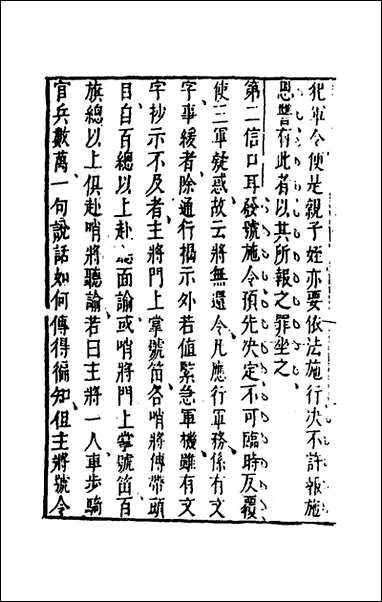 犯軍令便是親子姪亦要依法施行決不許報施
恩讐有此者以其所報之罪坐之
第二信口耳發號施令預先決定不可臨時反覆
使三軍疑惑故云將無還令凡應行軍務係有文
字事緩者除通行揭示外若值緊急軍機雖有文
字抄示不及者主將門上掌號笛各哨將傳帶頭
目白百總以上赴 面諭或哨將門上掌號笛百
旗總以上俱赴哨將聽諭若曰主將一人車步騎
官兵數萬一句說話如何傳得徧知但主將號令